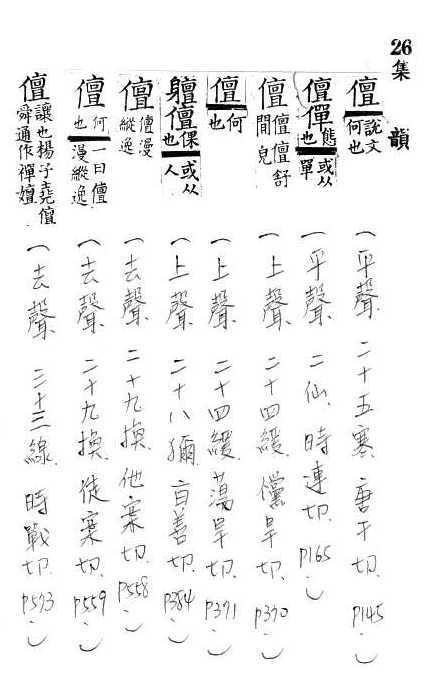 26 集韻
儃 說文何也 (平聲. 二十五寒. 唐干切. P145.)
儃僤 態也或从單 (平聲. 二仙. 時連切. P165.)
儃 儃儃舒間皃 (上聲. 二十四緩. 儻旱切. P370.)
儃 何也 (上聲. 二十四緩. 蕩旱切. P371.)
儃 倮也或从人 (上聲. 二十八獮. 善切. P384.)
儃 儃漫縱逸 (去聲. 二十九換. 他案切. P558.)
儃 何也一曰儃漫縱逸 (去聲. 二十九換. 徒案切. P559.)
儃 讓也楊子堯儃舜通作禪嬗 (去聲. 三十三線. 時戰切. P573.)